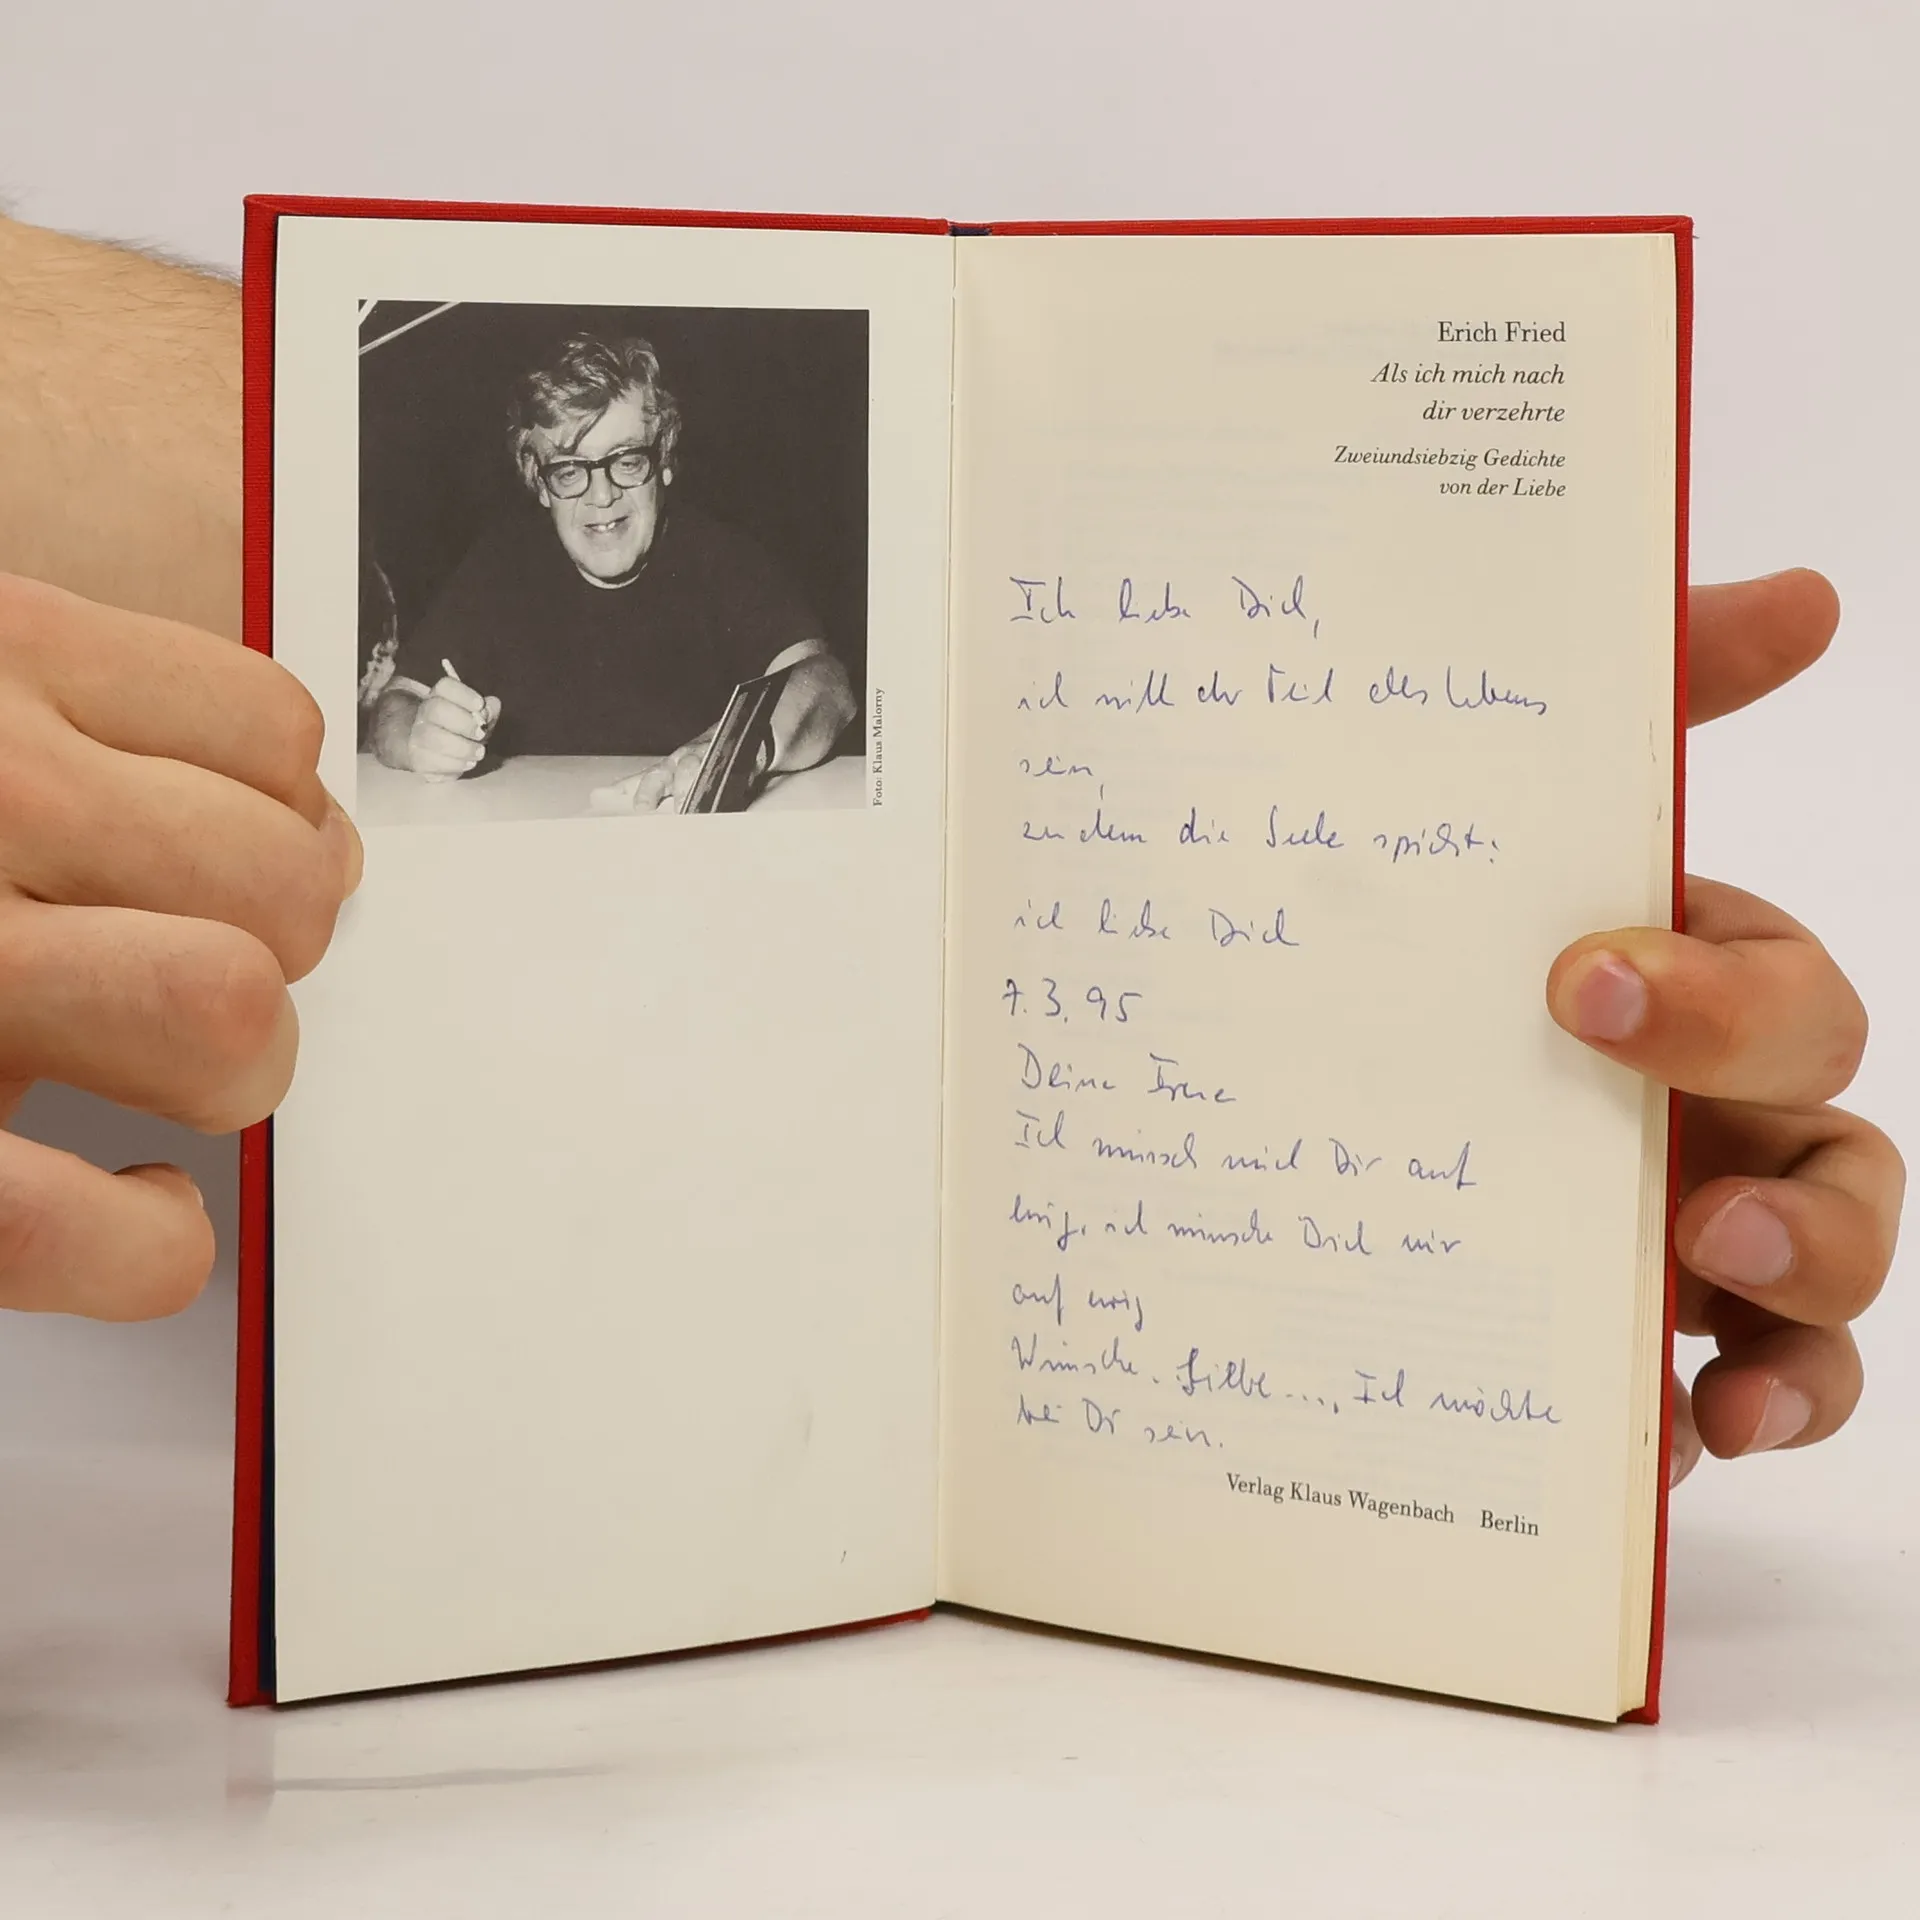 Foto: Klaus Malorny
Erich Fried
Als ich mich nach
dir verzehrte
Zweiundsiebzig Gedichte
von der Liebe
Ich liebe Dich,
ich will der Teil des Lebens
sein,
zu dem die Seele spricht:
ich liebe Dich
7.3.95
Deine
Ich wünsch mich Dir auf
ewig, ich wünsche Dich mir
auf ewig
Wünsche. ..., Ich möchte
bei Dir sein.
Verlag Klaus Wagenbach Berlin